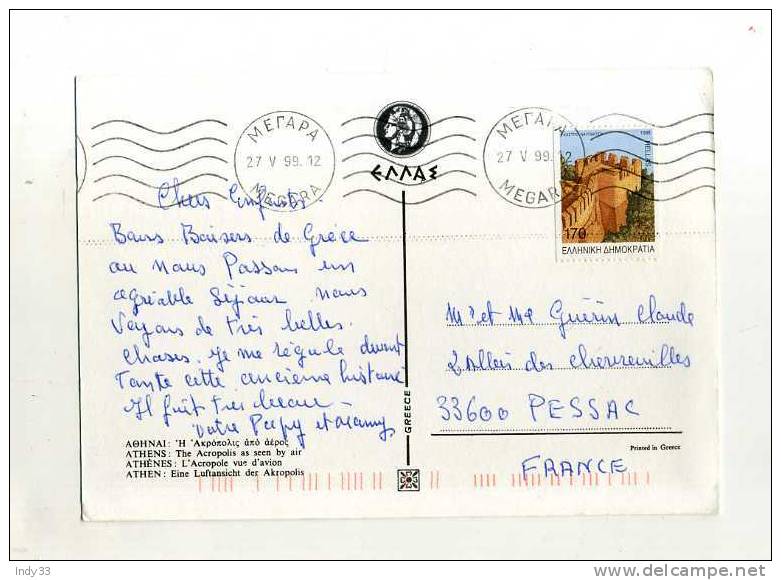 ΜΕΓΑΡΑ
27 V 99.12
MEGARA
ΕΛΛΑΣ
ΜΕΓΑΡΑ
27 V 99.12
MEGARA
1998
HELLAS
170
ΕΛΛΗΝΙΚΗ ΔΗΜΟΚΡΑΤΙΑ
Chers Enfants.
Bons Baisers de Grèce
ou nous Passons un
agréable Séjour nous
Voyons de très belles
choses. Je me régale devant
Toute cette ancienne histoire
Il fait très beau -
Votre Papy et Mamy
Mr et Me Guérin Claude
2 Allées des chèvrefeuilles
33600 PESSAC
FRANCE
GREECE
ΑΘΗΝΑΙ: Ἡ Ἀκρόπολις ἀπό ἀέρος
ATHENS: The Acropolis as seen by air
ATHÈNES: L'Acropole vue d'avion
ATHEN: Eine Luftansicht der Akropolis
Printed in Greece
Indy33
www.delcampe.net